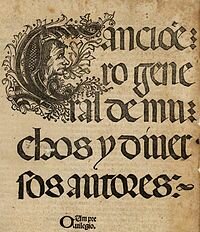 Cancióe⸗
ro gene
ral de mu
chos y diuer
sos autores:~
Cum pre
uilegio.